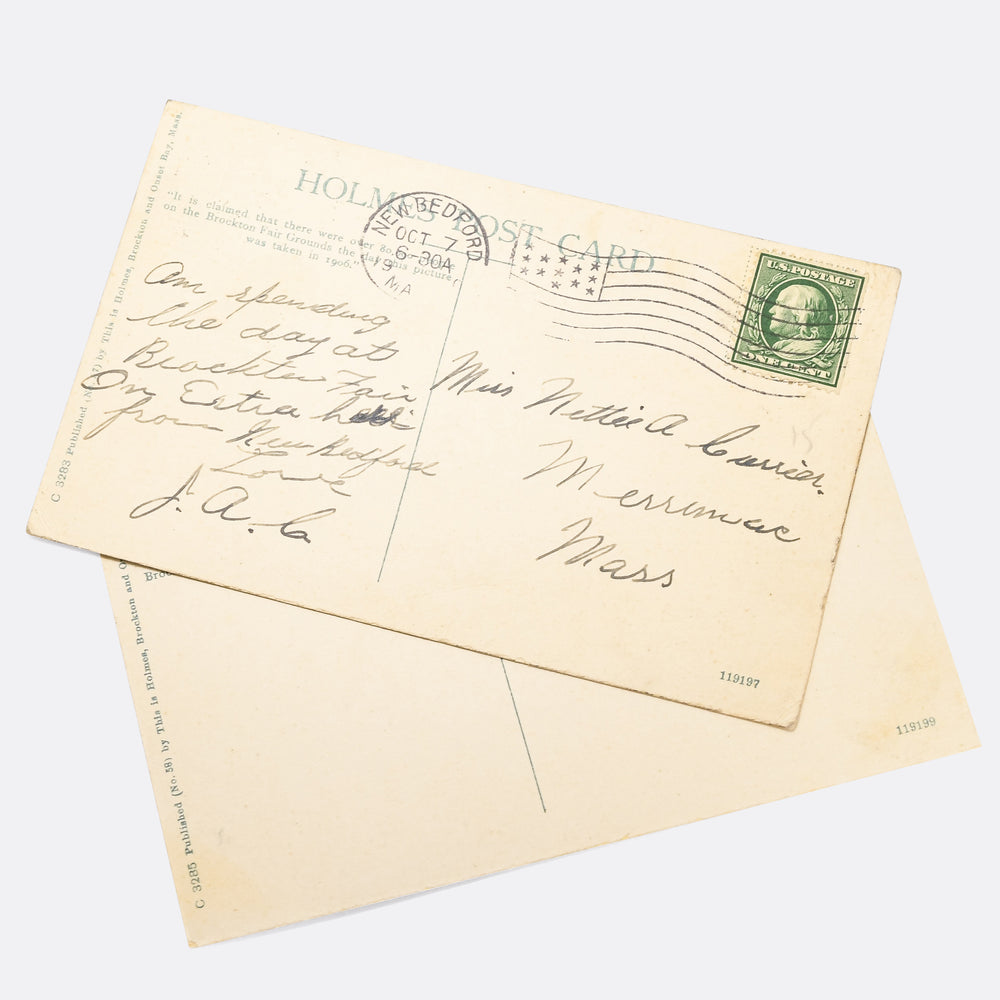 HOLMES POST CARD
"It is claimed that there were over 80,000 people
on the Brockton Fair Grounds the day this picture
was taken in 1906."
C 3283 Published (No. 57) by This is Holmes, Brockton and Onset Bay, Mass.
NEW BEDFORD
OCT 7
6-30A
19
MA
U.S. POSTAGE
ONE CENT
Am spending
the day at
Brockton Fair
On Extra
from New Bedford
Love
J. A. C
Miss Nettie A Currier.
Merrimac
Mass
119197
Bro
C 3285 Published (No. 58) by This is Holmes, Brockton and O
119199